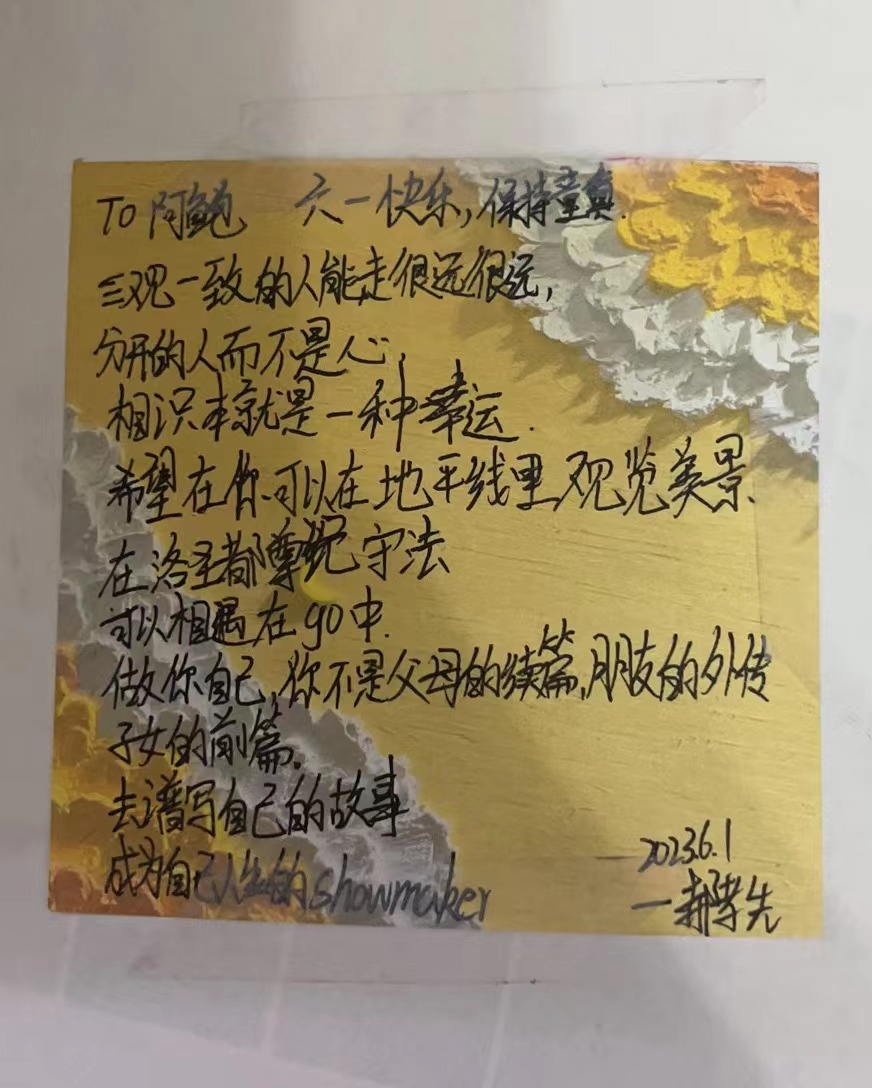 To 阿鲍 六一快乐,保持童真.
三观一致的人能走很远很远,
分开的人而不是心,
相识本就是一种幸运.
希望在你可以在地平线里观览美景.
在洛圣都遵纪守法
可以相遇在go中.
做你自己,你不是父母的续篇,朋友的外传
子女的前篇.
去谱写自己的故事
成为自己人生的showmaker
2023.6.1
—郝孝先